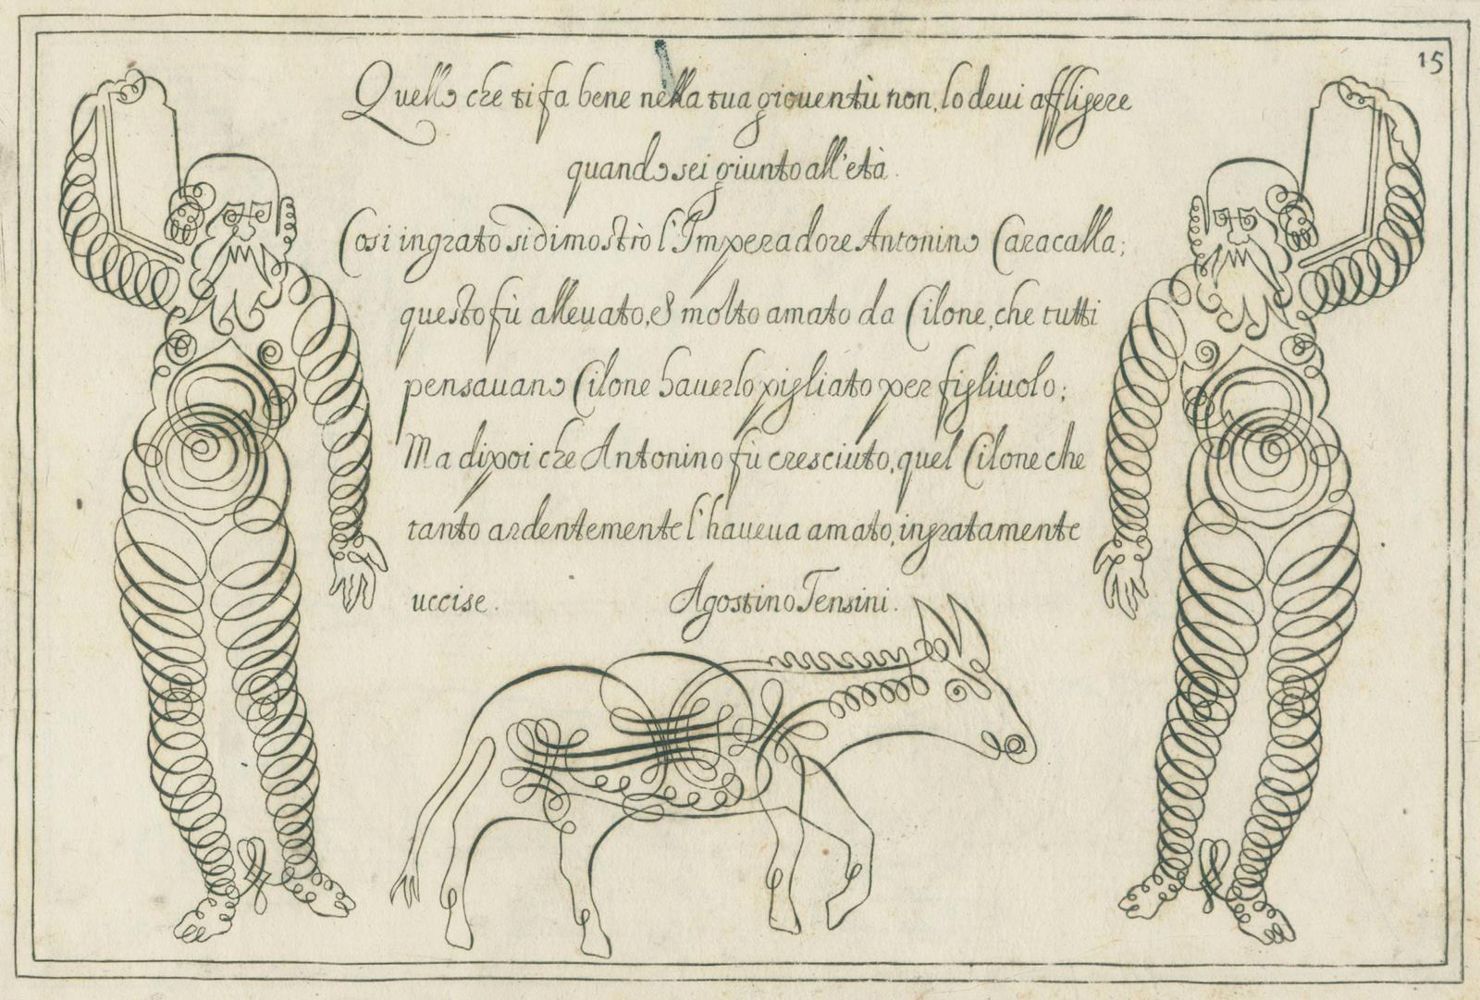 15
Quello che ti fa bene nella tua giouentù non, lo deui affligere
quando sei giunto all'età.
Cosi ingrato si dimostrò l'Imperadore Antonino Caracalla;
questo fù alleuato, & molto amato da Cilone, che tutti
pensauano Cilone hauerlo pigliato per figliuolo;
Ma dipoi che Antonino fù cresciuto, quel Cilone che
tanto ardentemente l'haueua amato, ingratamente
uccise. Agostino Tensini.